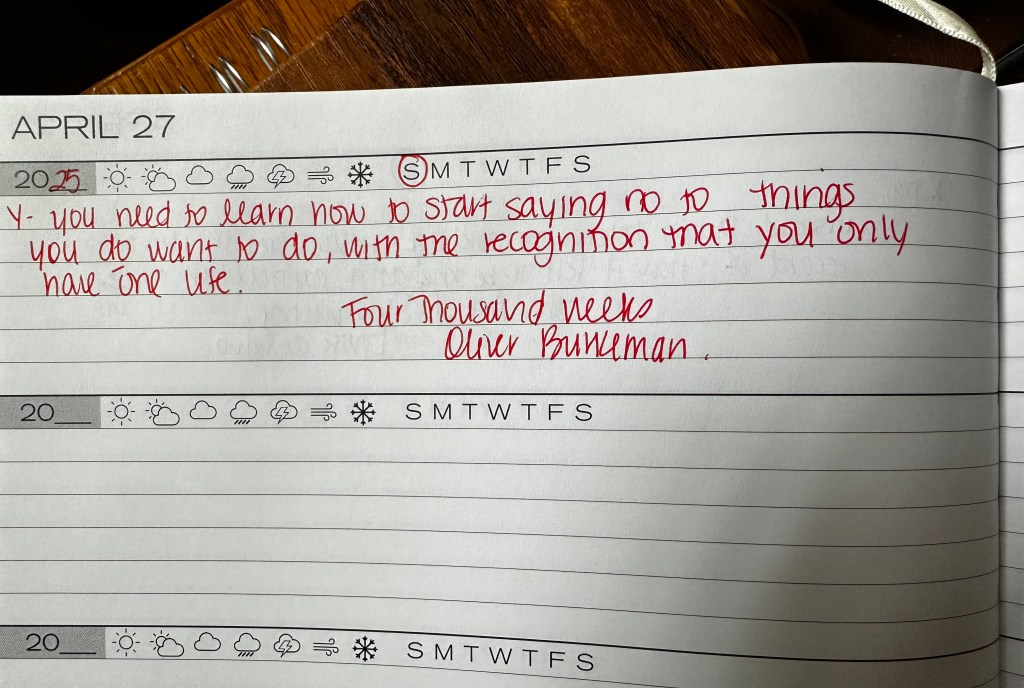 APRIL 27
2025 S M T W T F S
Y- you need to learn how to start saying no to things
you do want to do, with the recognition that you only
have one life.
Four Thousand weeks
Oliver Burkeman.
20__ S M T W T F S
20__ S M T W T F S